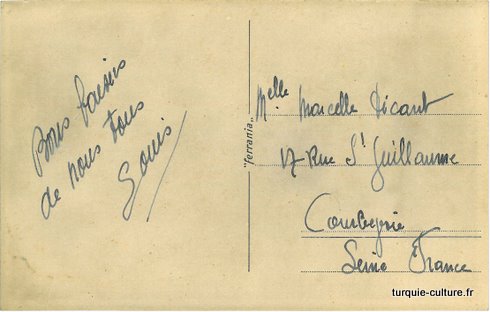 Bons baisers
de nous tous
Louis
"ferrania"
Melle Marcelle Picant
17 Rue St Guillaume
Courbevoie
Seine France
turquie-culture.fr